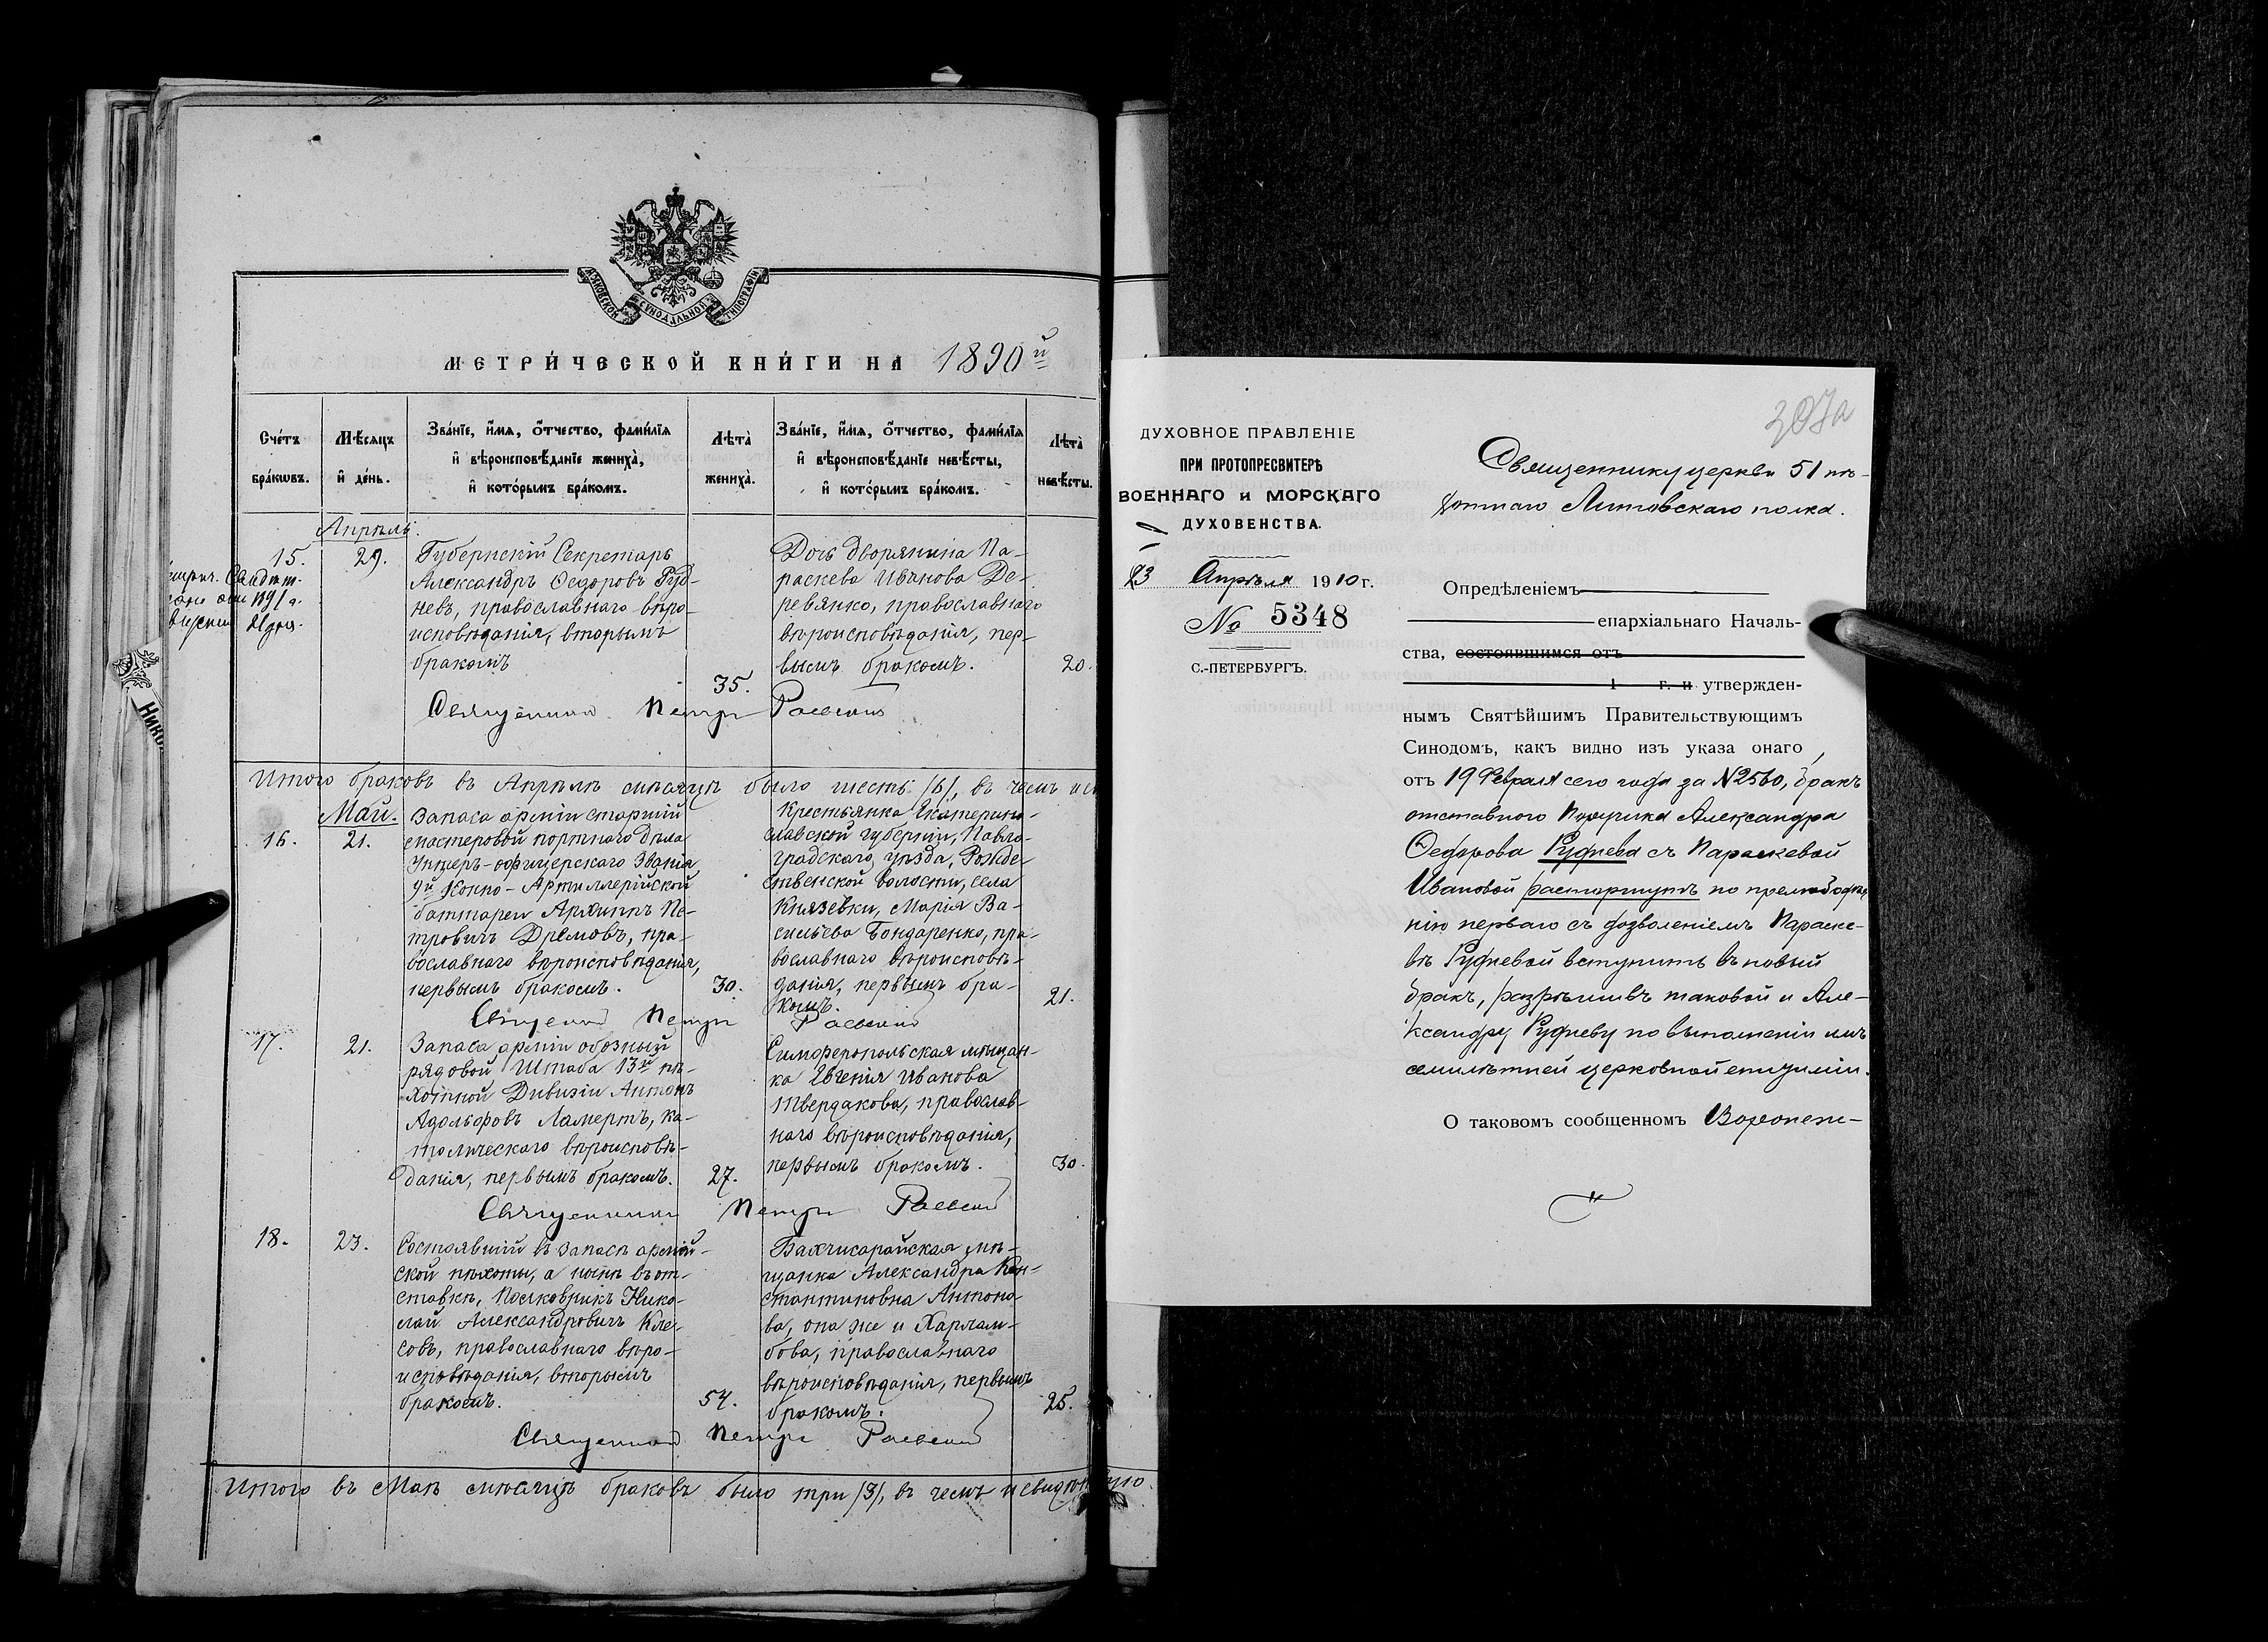 МОСКОВСКОЙ СѴНОДАЛЬНОЙ ТИПОГРАФІИ
МЕТРИ́ЧЕСКОЙ КНИ́ГИ НА 1890й
Сче́тъ бра́кѡвъ.
Мѣ́сяцъ и҆ де́нь.
Зва́нїе, и҆́мѧ, ѻ҆́тчество, фами́лїѧ
и҆ вѣроисповѣ́данїе жениха̀,
и҆ кото́рымъ бра́комъ.
Лѣта̀ жениха̀.
Зва́нїе, и҆́мѧ, ѻ҆́тчество, фами́лїѧ
и҆ вѣроисповѣ́данїе невѣ́сты,
и҆ кото́рымъ бра́комъ.
Лѣта̀ невѣ́сты.
Апрѣль.
15.
29.
Губернскій Секретарь
Александръ Ѳедоровъ Руд-
невъ, православнаго вѣро-
исповѣданія, вторымъ
бракомъ
35.
Дочь дворянина Па-
раскева Иванова Де-
ревянко, православнаго
вѣроисповѣданія, пер-
вымъ бракомъ.
20.
Священникъ Петръ Раевскій
Итого браковъ въ Апрѣлѣ мѣсяцѣ было шесть /6/, въ чемъ и
Май.
16.
21.
Запаса арміи старшій
мастеровой портнаго дѣла
Унтеръ-офицерскаго званія
9й Конно-Артиллерійской
баттареи Архипъ Пе-
тровичъ Дрёмовъ, пра-
вославнаго вѣроисповѣданія,
первымъ бракомъ.
30.
Крестьянка Екатерино-
славской губерніи, Павло-
градскаго уѣзда, Рожде-
ственской волости, села
Князевки, Марія Ва-
сильева Бондаренко, пра-
вославнаго вѣроисповѣ-
данія, первымъ бра-
комъ.
21.
Священникъ Петръ Раевскій
17.
21.
Запаса арміи обозный
рядовой Штаба 13й пѣ-
хотной Дивизіи Антонъ
Адольфовъ Ламертъ, ка-
толическаго вѣроисповѣ-
данія, первымъ бракомъ.
27.
Симферопольская мѣщан-
ка Евгенія Иванова
Твердакова, православ-
наго вѣроисповѣданія,
первымъ бракомъ.
30.
Священникъ Петръ Раевскій
18.
23.
Состоявшій въ запасѣ армей-
ской пѣхоты, а нынѣ въ от-
ставкѣ, Полковникъ Нико-
лай Александровичъ Кле-
совъ, православнаго вѣро-
исповѣданія, вторымъ
бракомъ.
54.
Бахчисарайская мѣ-
щанка Александра Кон-
стантиновна Антоно-
ва, она же и Харлам-
бова, православнаго
вѣроисповѣданія, первымъ
бракомъ.
25.
Священникъ Петръ Раевскій
Итого въ Маѣ мѣсяцѣ браковъ было три /3/, въ чемъ и свидѣтельствую.
307а
ДУХОВНОЕ ПРАВЛЕНІЕ
ПРИ ПРОТОПРЕСВИТЕРѢ
ВОЕННАГО и МОРСКАГО
ДУХОВЕНСТВА.
23 Апрѣля 1910 г.
№ 5348
С.-ПЕТЕРБУРГЪ.
Священнику церкви 51 пѣ-
хотнаго Литовскаго полка.
Опредѣленіемъ
епархіальнаго Началь-
ства, состоявшимся отъ
1 г. и утвержден-
нымъ Святѣйшимъ Правительствующимъ
Синодомъ, какъ видно изъ указа онаго
отъ 19 Февраля сего года за № 2560, бракъ
отставного Поручика Александра
Ѳедорова Руднева съ Параскевой
Ивановой расторгнутъ по прелюбодѣя-
нію перваго съ дозволеніемъ Параске-
вѣ Рудневой вступить въ новый
бракъ, разрѣшивъ таковой и Але-
ксандру Рудневу по выполненіи имъ
семилѣтней церковной епитиміи.
О таковомъ сообщенномъ Воронеж-